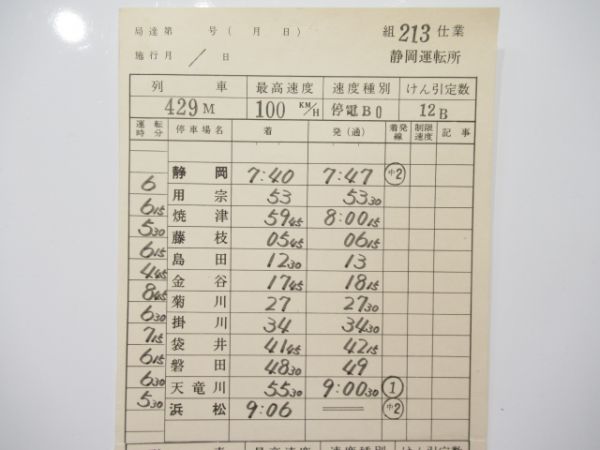 局達第 号 ( 月 日) 組 213 仕業
施行月 / 日 静岡運転所
列 車 最高速度 速度種別 けん引定数
429M 100 KM/H 停電B0 12B
運転時分 停車場名 着 発(通) 着発線 制限速度 記事
静岡 7:40 7:47 中2
6 用宗 53 53 30
6 15 焼津 59 45 8:00 15
5 30 藤枝 05 45 06 15
6 15 島田 12 30 13
4 45 金谷 17 45 18 15
8 45 菊川 27 27 30
6 30 掛川 34 34 30
7 15 袋井 41 45 42 15
6 15 磐田 48 30 49
6 30 天竜川 55 30 9:00 30 1
5 30 浜松 9:06 = 中2
車 最高速度 速度種別 けん引定数